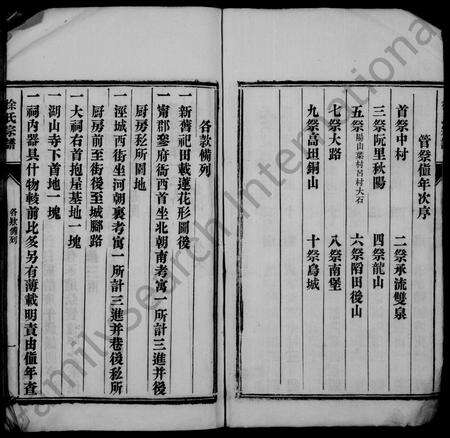 管祭值年次序
首祭中村
二祭承流雙泉
三祭阮里秋陽
四祭龍山
五祭陽山葉村呂村大石
六祭陷田後山
七祭大路
八祭南堡
九祭高坦銅山
十祭烏城
各款備列
一新舊祀田載蓮花形圖後
一甯郡鏊府衙西首坐北朝南考寓一所計三進并後
廚房私所園地
一涇城西街坐河朝裏考寓一所計三進并巷後私所
廚房前至街後至城腳路
一大祠右首抱屋基地一塊
一湖山寺下首地一塊
一祠內器具什物較前此多另有薄載明責由值年查
徐氏宗譜
各款備列
一
FamilySearch International